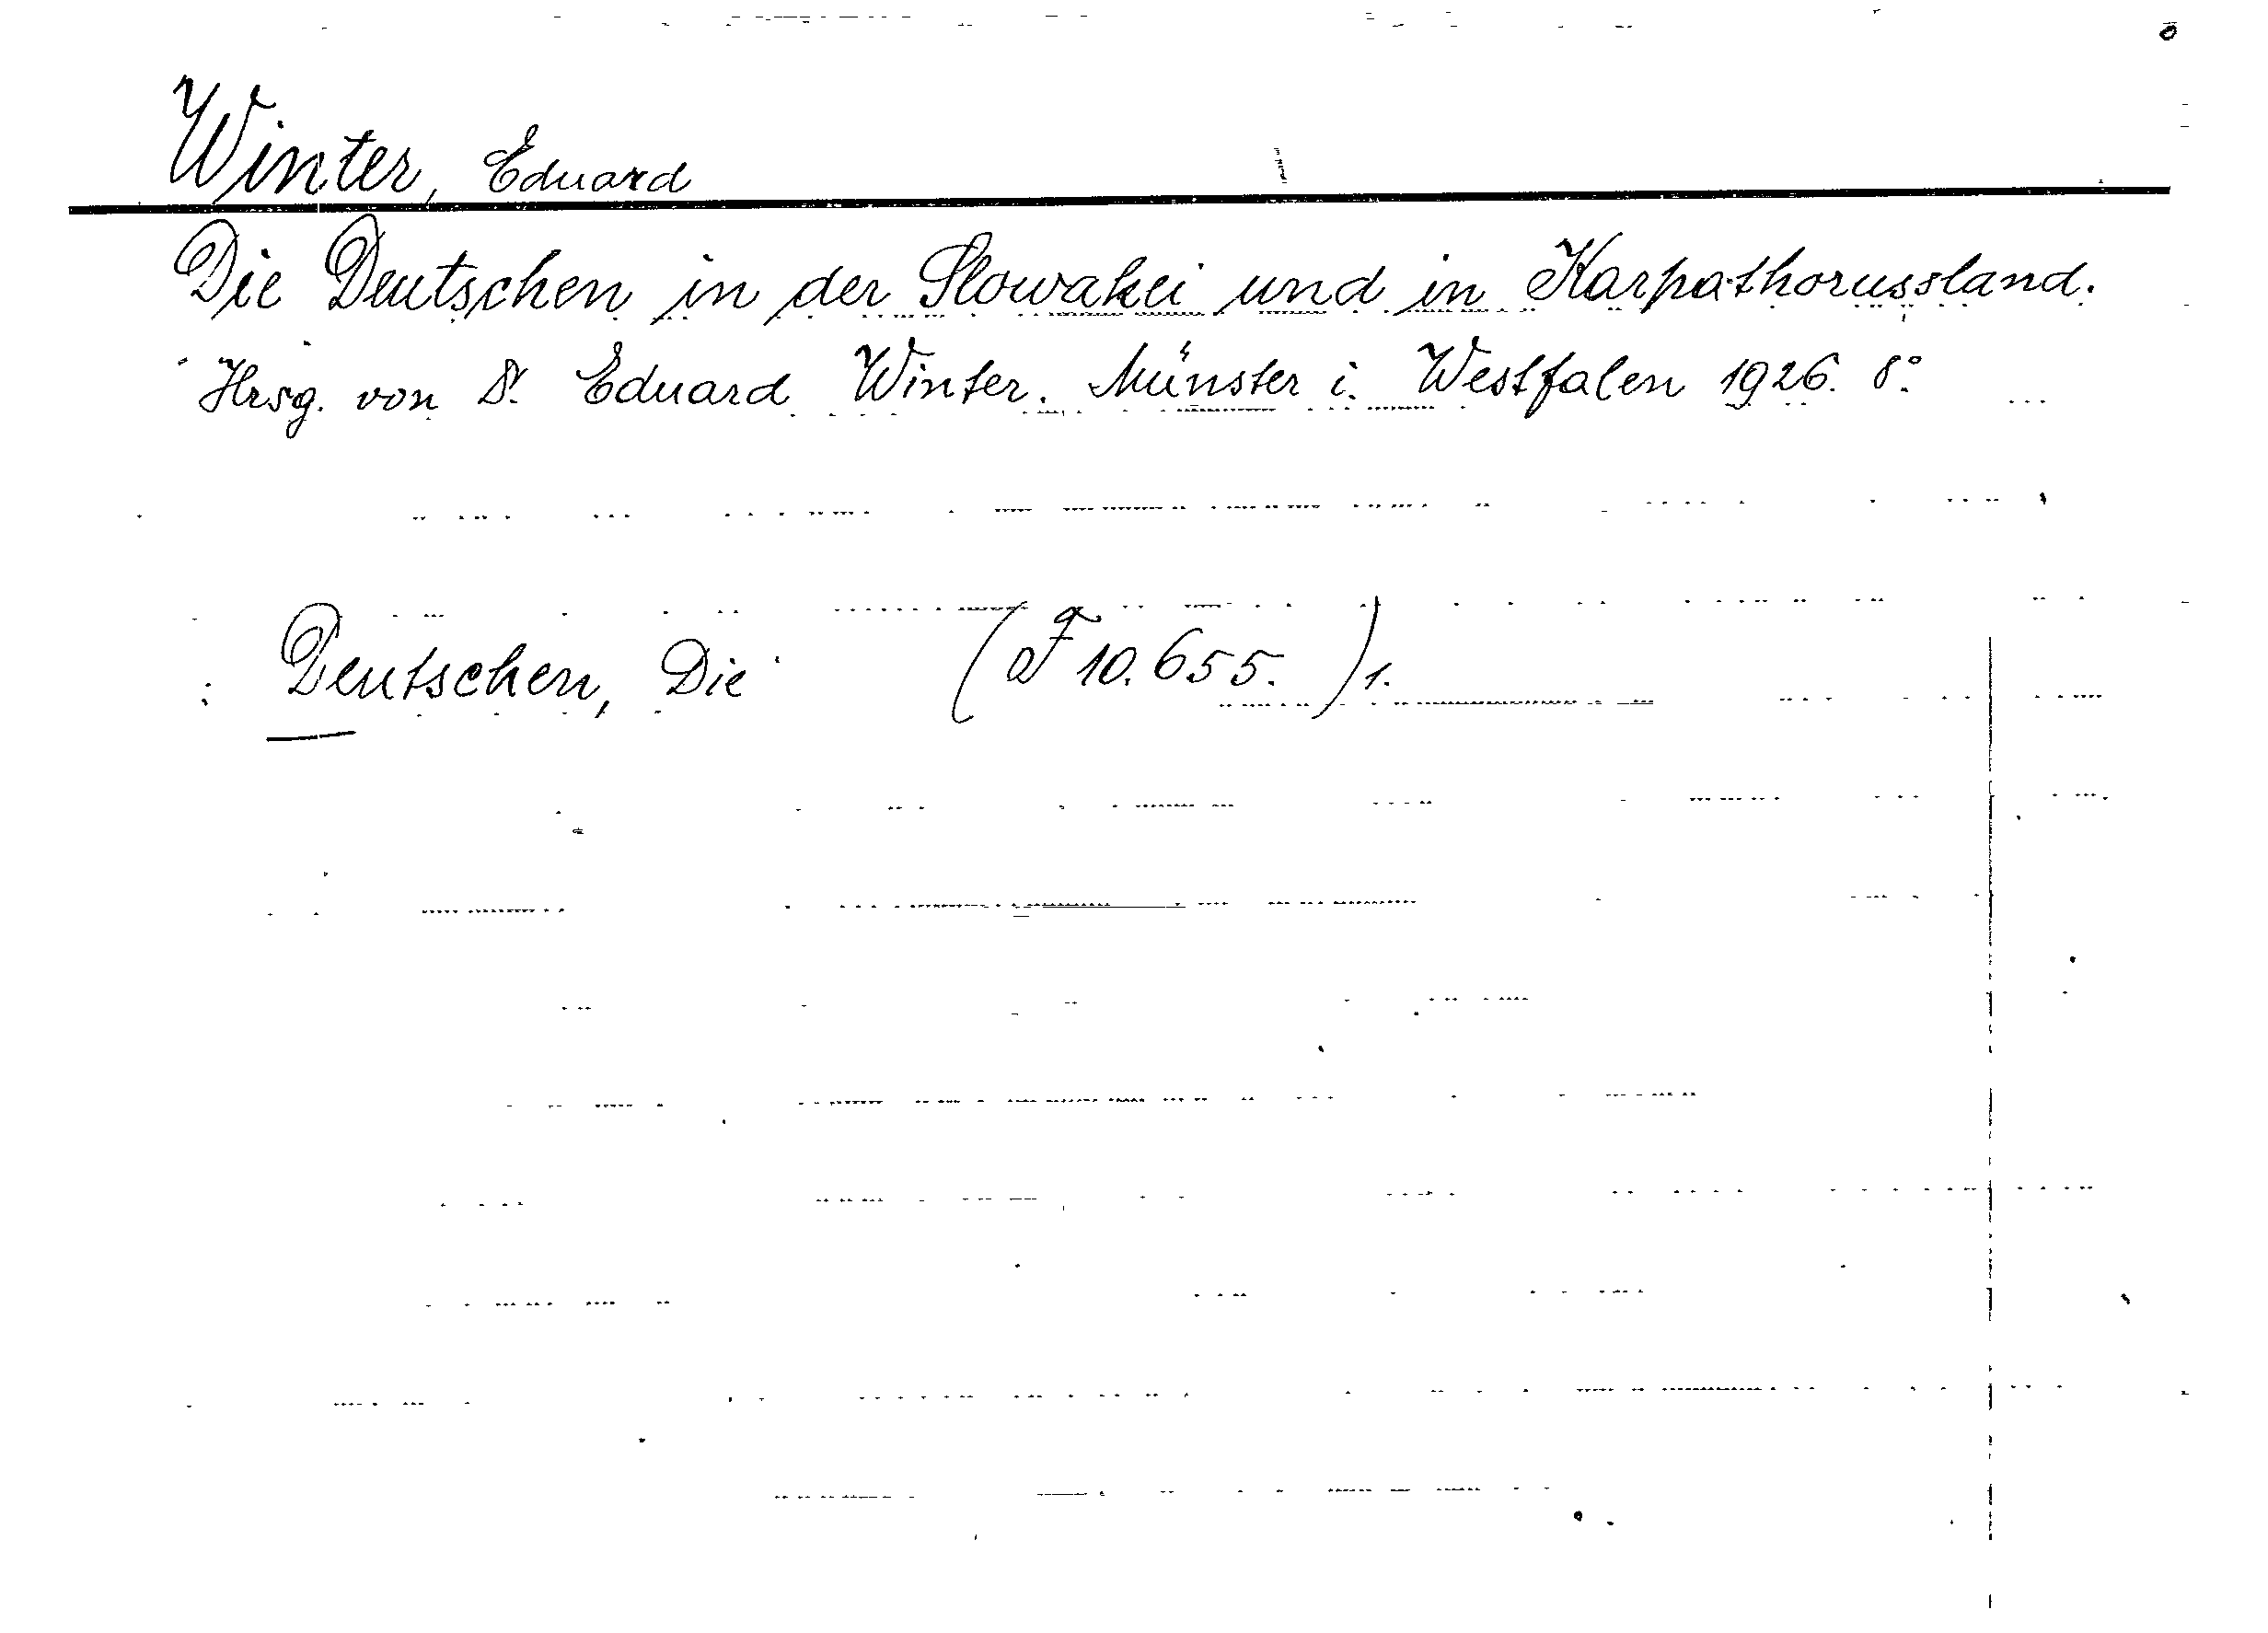 Winter, Eduard
Die Deutschen in der Slowakei und in Karpathorussland.
Hrsg. von Dr. Eduard Winter. Münster i. Westfalen 1926. 8°.
Deutschen, Die (F 10.655.) 1.